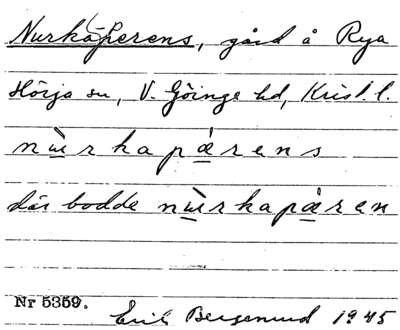 Nurkaperens, gård å Rya
Hörja sn, V. Göinge hd, Krist. l.
nùrkapä́rens
där bodde nùrkapären
Nr 5359. Erik Bergenund 1945